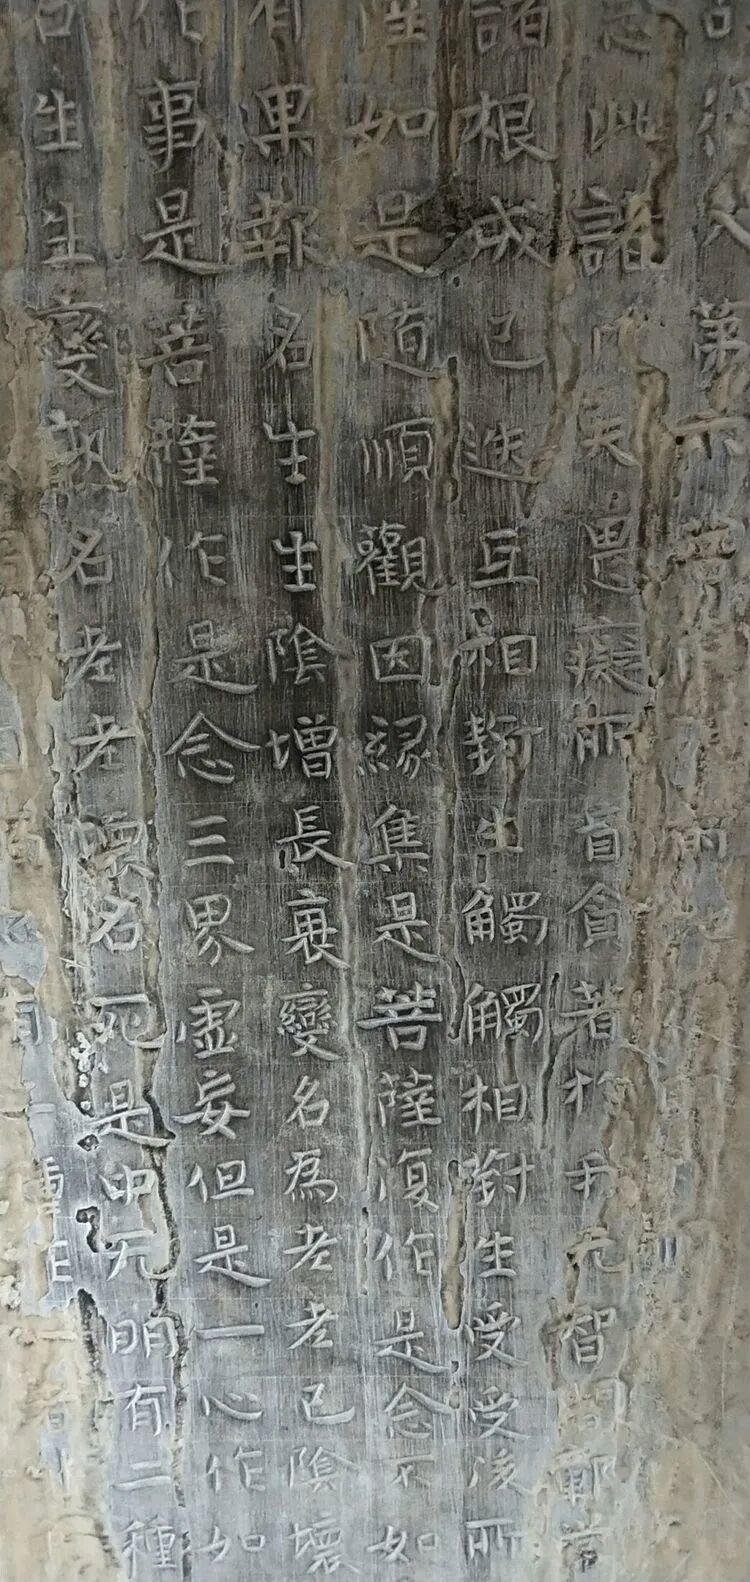 入第六菩前地
念此諸凡夫愚癡所盲貪著於我无智闇鄣常
諸根成已迭互相對生觸觸相對生受受後所
如是随順觀因緣集是菩薩復作是念不如
有果報名生生陰增長衰變名為老老已陰壞
作事是菩薩作是念三界虛妄但是一心作如
名生生變熟名老老壞名死是中无明有二種
有二種作一者